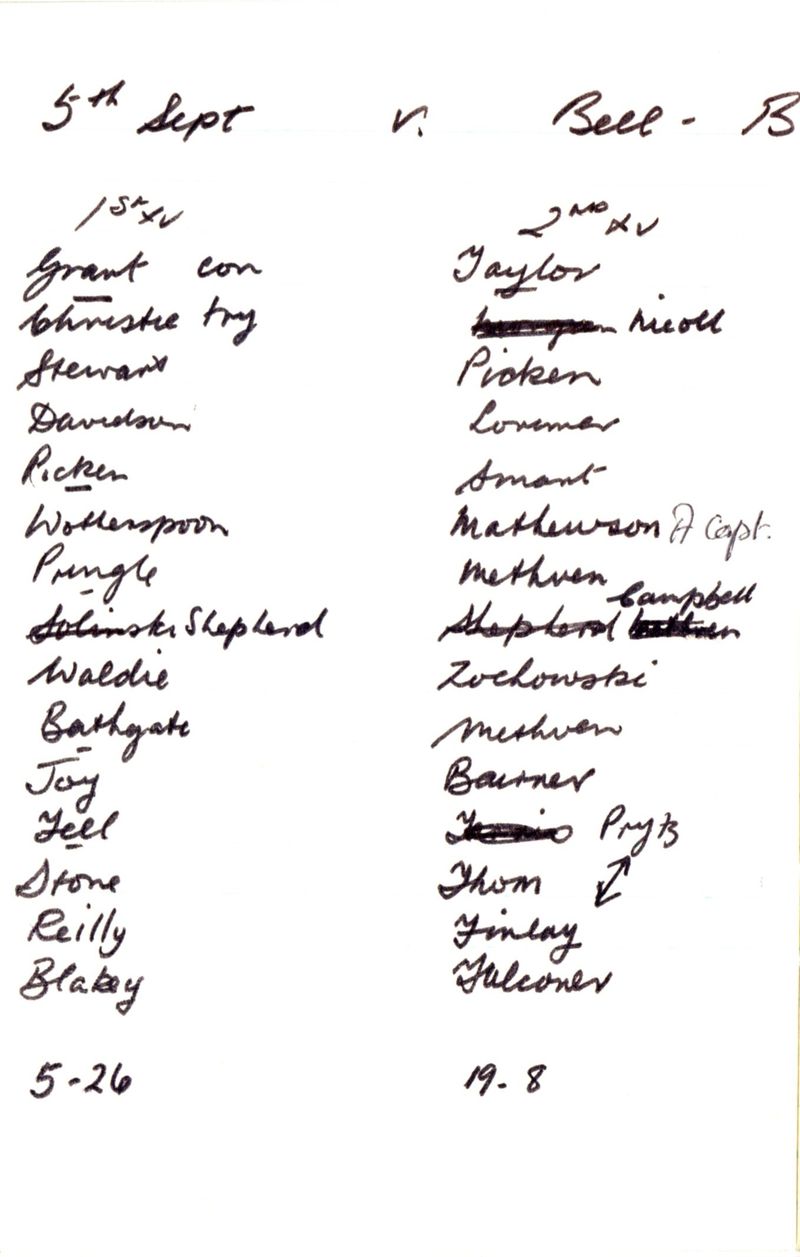 5th Sept v. Bell - B
1st XV 2nd XV
Grant con Taylor
Christie try Nicoll
Stewart Picken
Davidson Lorimer
Picken Smart
Wotherspoon Mathewson A Capt.
Pringle Methven
Campbell
Solinski Shepherd Shepherd
Waldie Zochowski
Bathgate Methven
Joy Bourner
Fell Prytz
Stone Thom
Reilly Finlay
Blakey Falconer
5-26 19-8